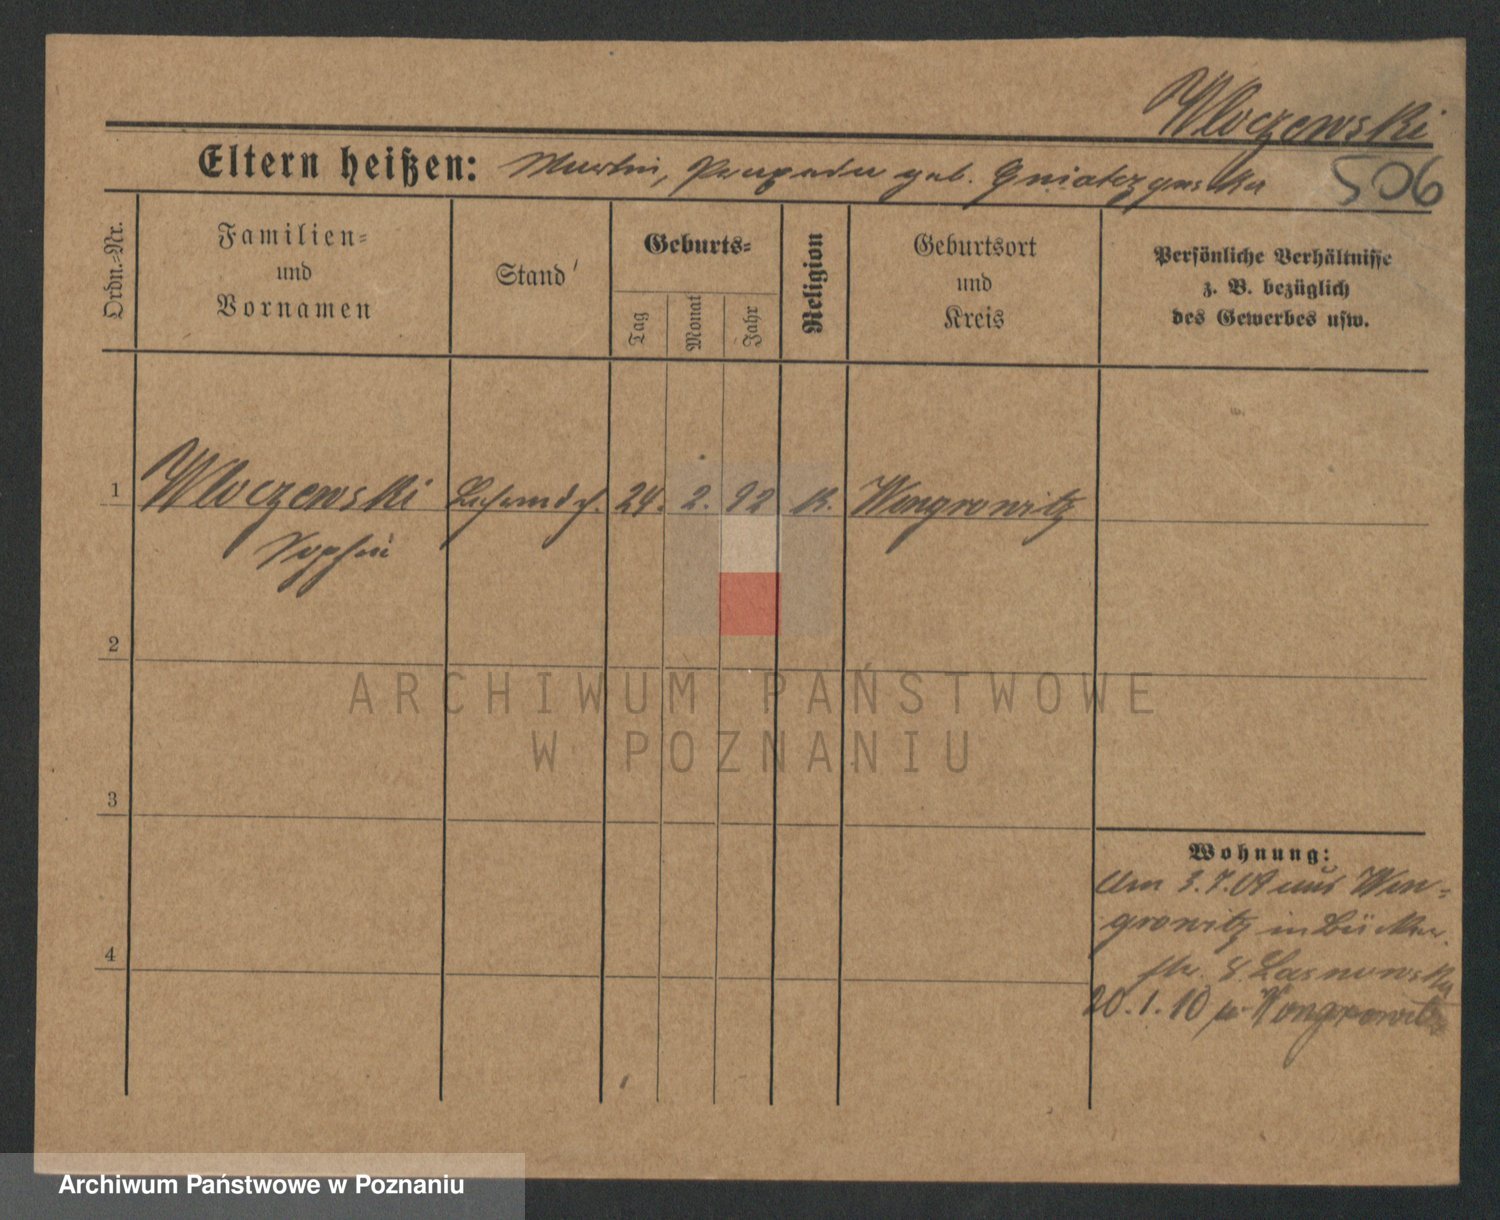 Wloczewski
Eltern heißen: Martin, geb.
506
Ordn.-Nr.
Familien-
und
Vornamen
Stand
Geburts-
Tag
Monat
Jahr
Religion
Geburtsort
und
Kreis
Persönliche Verhältnisse
z. B. bezüglich
des Gewerbes usw.
1 Wloczewski 24. 2. 92 K. Wongrowitz
Sophie
2
3
4
Wohnung:
Am 3.7.09 aus Won-
growitz in Bücker
str. 8.
20.1.10 Wongrowitz
ARCHIWUM PAŃSTWOWE
W POZNANIU
Archiwum Państwowe w Poznaniu